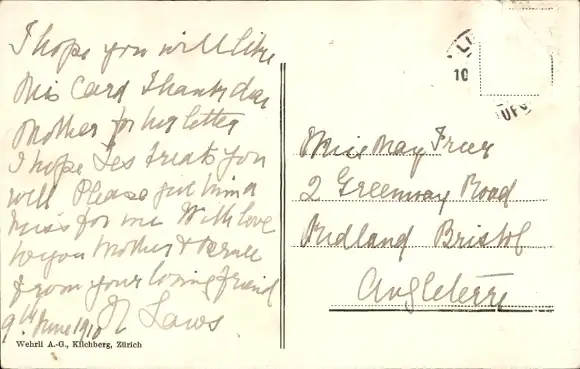 I hope you will like
this card Thank dear
Mother for her letter
I hope Les treats you
well Please give him a
kiss for me With love
to you Mother &
from your loving friend
9th June 1910 N Laws
Wehrli A.-G., Kilchberg, Zürich
10
Miss May Freer
2 Greenway Road
Redland Bristol
Angleterre